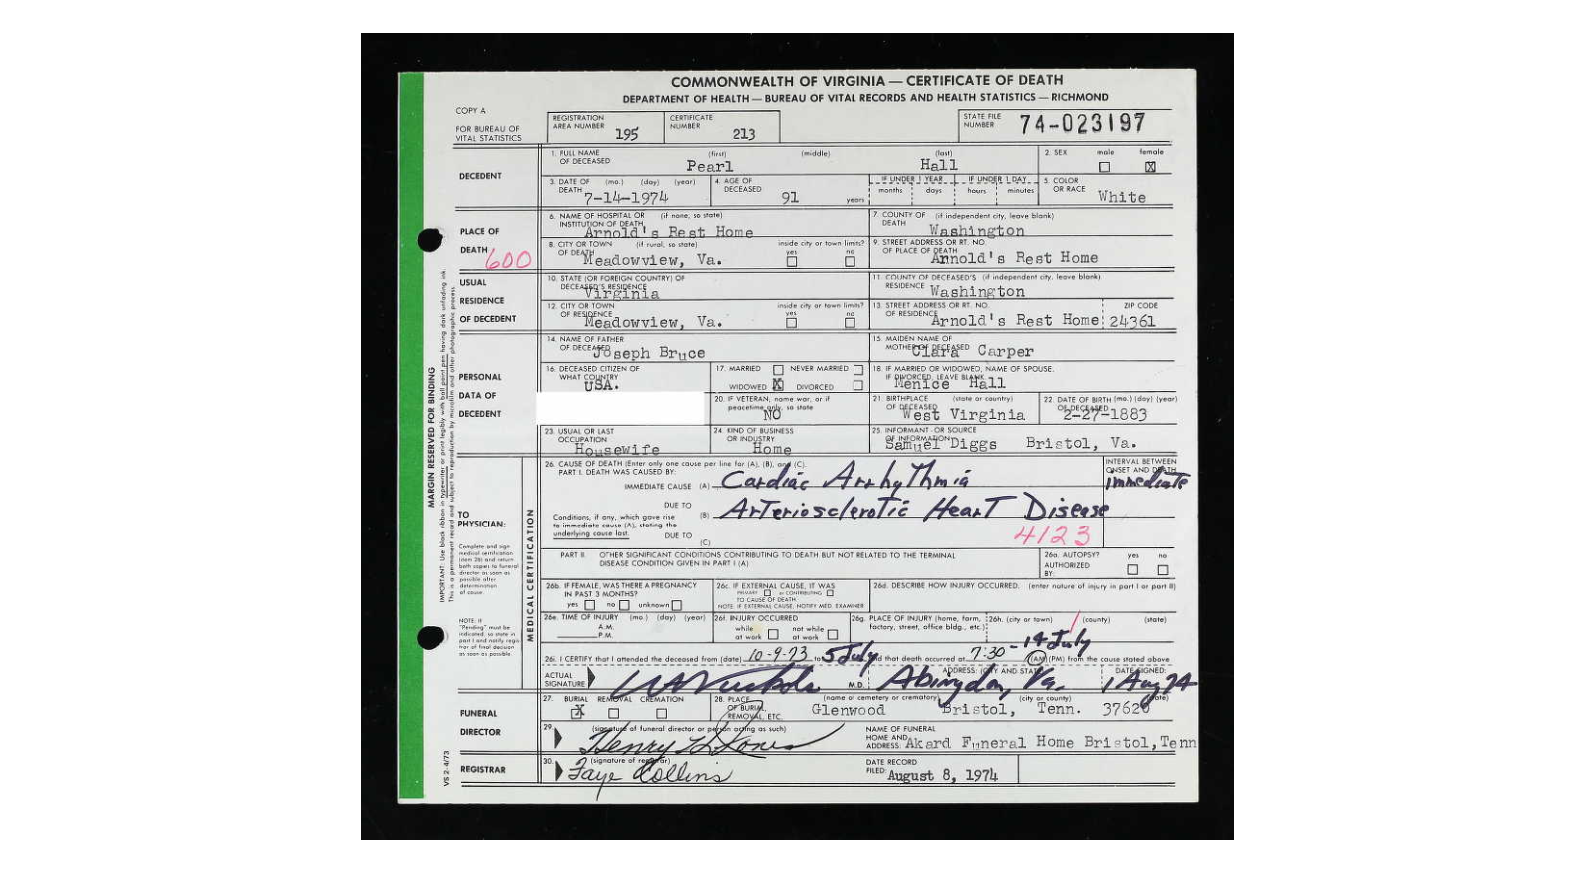 COMMONWEALTH OF VIRGINIA — CERTIFICATE OF DEATH
DEPARTMENT OF HEALTH — BUREAU OF VITAL RECORDS AND HEALTH STATISTICS — RICHMOND
COPY A
FOR BUREAU OF VITAL STATISTICS
REGISTRATION AREA NUMBER 195
CERTIFICATE NUMBER 213
STATE FILE NUMBER 74-023197
DECEDENT
1. FULL NAME OF DECEASED (first) (middle) (last)
Pearl Hall
2. SEX male female X
3. DATE OF DEATH (mo.) (day) (year) 7-14-1974
4. AGE OF DECEASED 91 years
IF UNDER 1 YEAR months days
IF UNDER 1 DAY hours minutes
5. COLOR OR RACE White
PLACE OF DEATH
600
6. NAME OF HOSPITAL OR INSTITUTION OF DEATH (if none, so state)
Arnold's Rest Home
7. COUNTY OF DEATH (if independent city, leave blank)
Washington
8. CITY OR TOWN OF DEATH (if rural, so state) inside city or town limits? yes no
Meadowview, Va.
9. STREET ADDRESS OR RT. NO. OF PLACE OF DEATH
Arnold's Rest Home
USUAL RESIDENCE OF DECEDENT
10. STATE (OR FOREIGN COUNTRY) OF DECEASED'S RESIDENCE
Virginia
11. COUNTY OF DECEASED'S RESIDENCE (if independent city, leave blank)
Washington
12. CITY OR TOWN OF RESIDENCE inside city or town limits? yes no
Meadowview, Va.
13. STREET ADDRESS OR RT. NO. OF RESIDENCE ZIP CODE
Arnold's Rest Home 24361
PERSONAL DATA OF DECEDENT
14. NAME OF FATHER OF DECEASED
Joseph Bruce
15. MAIDEN NAME OF MOTHER OF DECEASED
Clara Carper
16. DECEASED CITIZEN OF WHAT COUNTRY
USA.
17. MARRIED NEVER MARRIED
WIDOWED X DIVORCED
18. IF MARRIED OR WIDOWED, NAME OF SPOUSE. IF DIVORCED, LEAVE BLANK
Menice Hall
20. IF VETERAN, name war, or if peacetime only, so state
NO
21. BIRTHPLACE OF DECEASED (state or country)
West Virginia
22. DATE OF BIRTH OF DECEASED (mo.) (day) (year)
2-27-1883
23. USUAL OR LAST OCCUPATION
Housewife
24. KIND OF BUSINESS OR INDUSTRY
Home
25. INFORMANT OR SOURCE OF INFORMATION
Samuel Diggs Bristol, Va.
MARGIN RESERVED FOR BINDING
IMPORTANT: Use black ribbon in typewriter or print legibly with ball point pen having dark unfading ink.
This is a permanent record and subject to reproduction by microfilm and other photographic process.
TO PHYSICIAN:
Complete and sign medical certification (item 26) and return both copies to funeral director as soon as possible after determination of cause.
NOTE: If "Pending" must be indicated, so state in part I and notify registrar of final decision as soon as possible.
MEDICAL CERTIFICATION
26. CAUSE OF DEATH (Enter only one cause per line for (A), (B), and (C).
PART I. DEATH WAS CAUSED BY:
INTERVAL BETWEEN ONSET AND DEATH
IMMEDIATE CAUSE (A) Cardiac Arrhythmia immediate
DUE TO (B) Arteriosclerotic Heart Disease
Conditions, if any, which gave rise to immediate cause (A), stating the underlying cause last.
DUE TO (C)
4123
PART II. OTHER SIGNIFICANT CONDITIONS CONTRIBUTING TO DEATH BUT NOT RELATED TO THE TERMINAL DISEASE CONDITION GIVEN IN PART I (A)
26a. AUTOPSY? yes no
AUTHORIZED BY:
26b. IF FEMALE, WAS THERE A PREGNANCY IN PAST 3 MONTHS?
yes no unknown
26c. IF EXTERNAL CAUSE, IT WAS
PRIMARY or CONTRIBUTING
TO CAUSE OF DEATH
NOTE: IF EXTERNAL CAUSE, NOTIFY MED. EXAMINER
26d. DESCRIBE HOW INJURY OCCURRED. (enter nature of injury in part I or part II)
26e. TIME OF INJURY (mo.) (day) (year)
A.M.
P.M.
26f. INJURY OCCURRED
while at work not while at work
26g. PLACE OF INJURY (home, farm, factory, street, office bldg., etc.)
26h. (city or town) (county) (state)
26i. I CERTIFY that I attended the deceased from (date) 10-9-73 to 5 July and that death occurred at 7:30 - 14 July (AM) (PM) from the cause stated above
ACTUAL SIGNATURE M.D.
ADDRESS: (CITY AND STATE) Abingdon, Va.
DATE SIGNED: 1 Aug 74
FUNERAL DIRECTOR
27. BURIAL X REMOVAL CREMATION
28. PLACE OF BURIAL, REMOVAL, ETC. (name of cemetery or crematory) (city or county) (state)
Glenwood Bristol, Tenn. 37620
29. (signature of funeral director or person acting as such)
Henry Jones
NAME OF FUNERAL HOME AND ADDRESS: Akard Funeral Home Bristol, Tenn
REGISTRAR
30. (signature of registrar)
Faye Collins
DATE RECORD FILED: August 8, 1974
VS 2-4/73